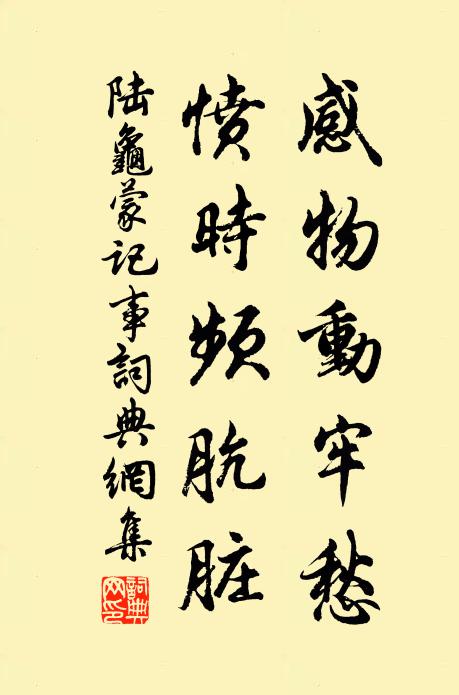 感物動牢愁
憤時頻肮脏
陆龜蒙记事詞典網集
詞典網印